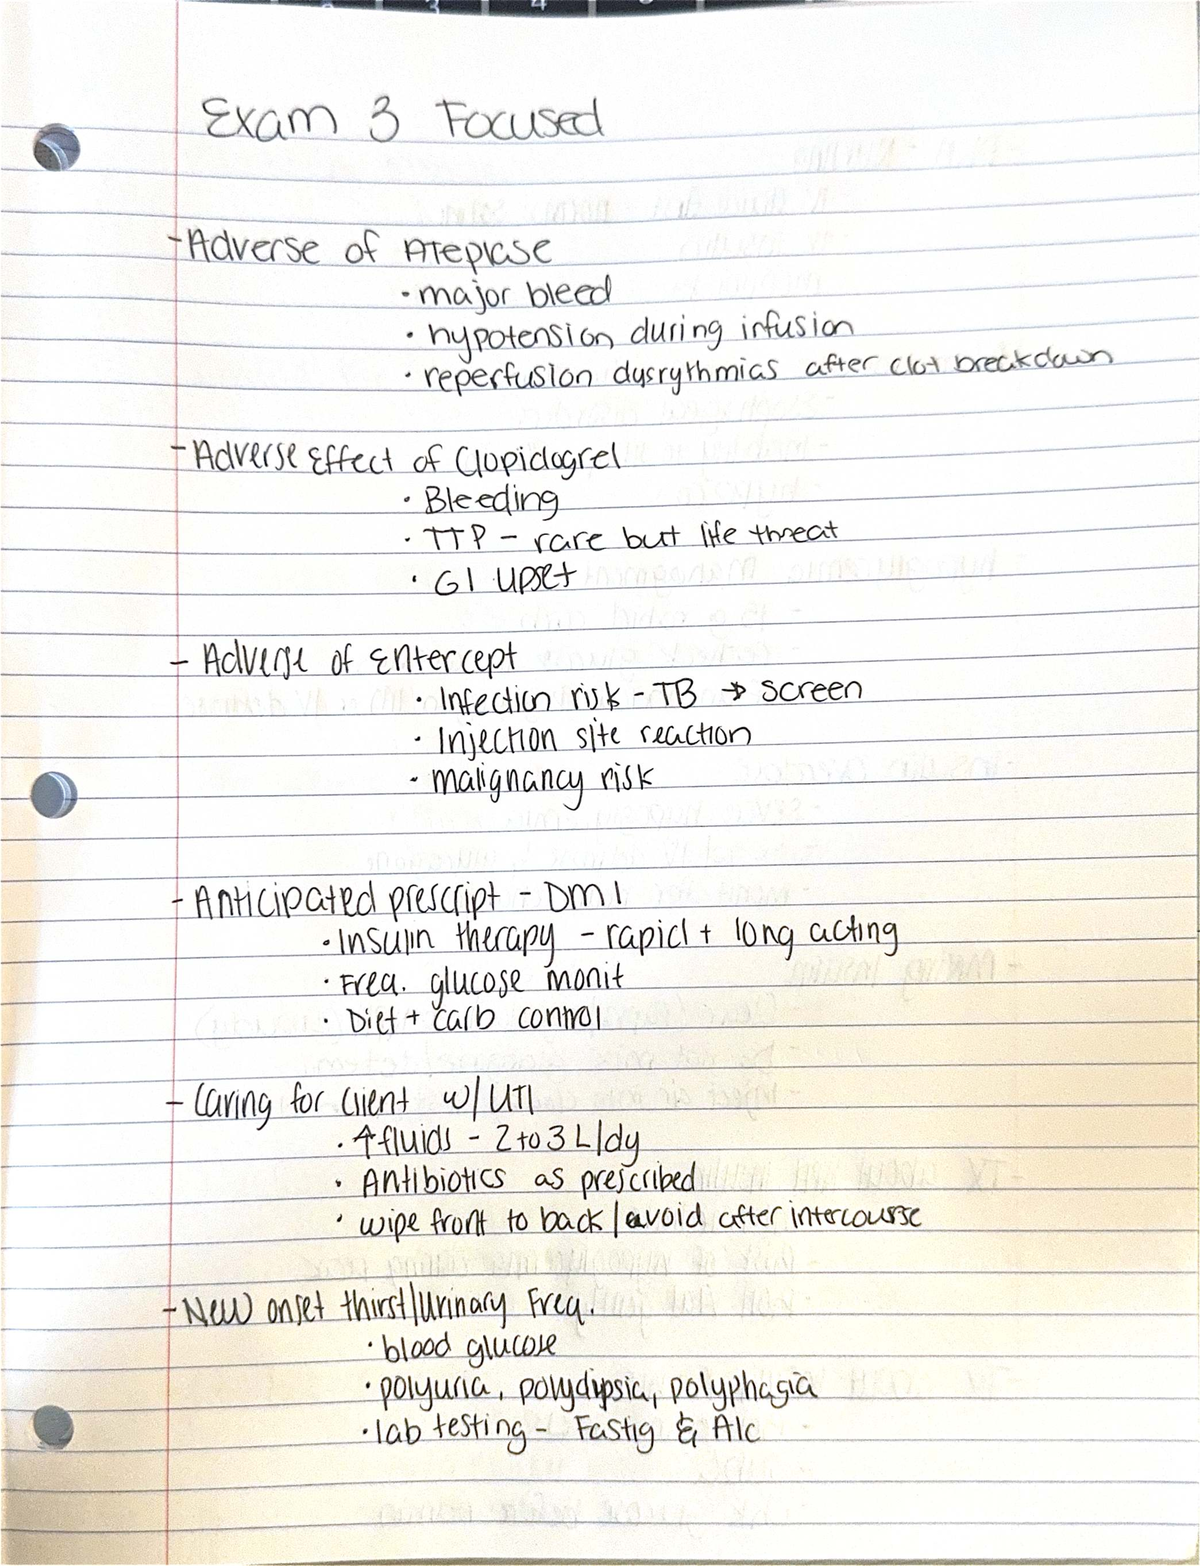 Exam 3 Focused
- Adverse of Ateplase
• major bleed
• hypotension during infusion
• reperfusion dysrythmias after clot breakdown
- Adverse Effect of Clopidogrel
• Bleeding
• TTP - rare but life threat
• GI upset
- Adverse of Entercept
• Infection risk - TB → screen
• Injection site reaction
• malignancy risk
- Anticipated prescript - DM1
• Insulin therapy - rapid + long acting
• Freq. glucose monit
• Diet + carb control
- Caring for Client w/ UTI
• ↑ fluids - 2 to 3 L/dy
• Antibiotics as prescribed
• wipe front to back / avoid after intercourse
- New onset thirst/Urinary Freq.
• blood glucose
• polyuria, polydipsia, polyphagia
• lab testing - Fastig & A1c